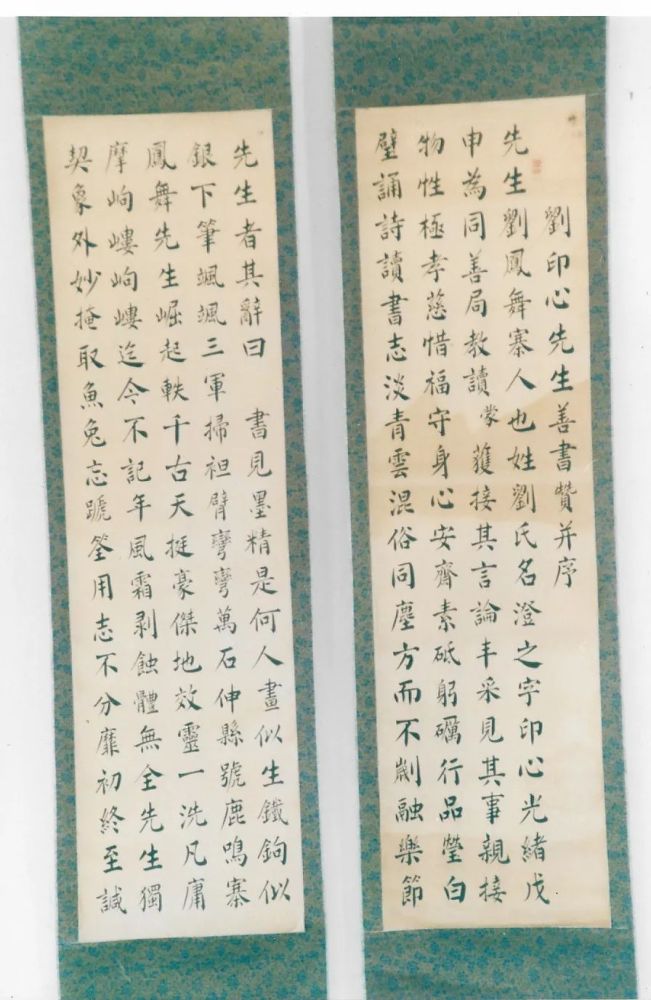 劉印心先生善書贊并序
先生劉鳳舞寨人也姓劉氏名澄之字印心光緒戊
申為同善局教讀蒙獲接其言論丰采見其事親接
物性極孝慈惜福守身心安齊素砥躬礪行品瑩白
璧誦詩讀書志淡青雲混俗同塵方而不劌融樂節
先生者其辭曰 書見墨精是何人畫似生鐵鉤似
銀下筆颯颯三軍掃袒臂彎彎萬石伸縣號鹿鳴寨
鳳舞先生崛起軼千古天挺豪傑地效靈一洗凡庸
摩岣嶁岣嶁迄今不記年風霜剥蝕體無全先生獨
契象外妙掩取魚兔忘蹏筌用志不分靡初終至誠